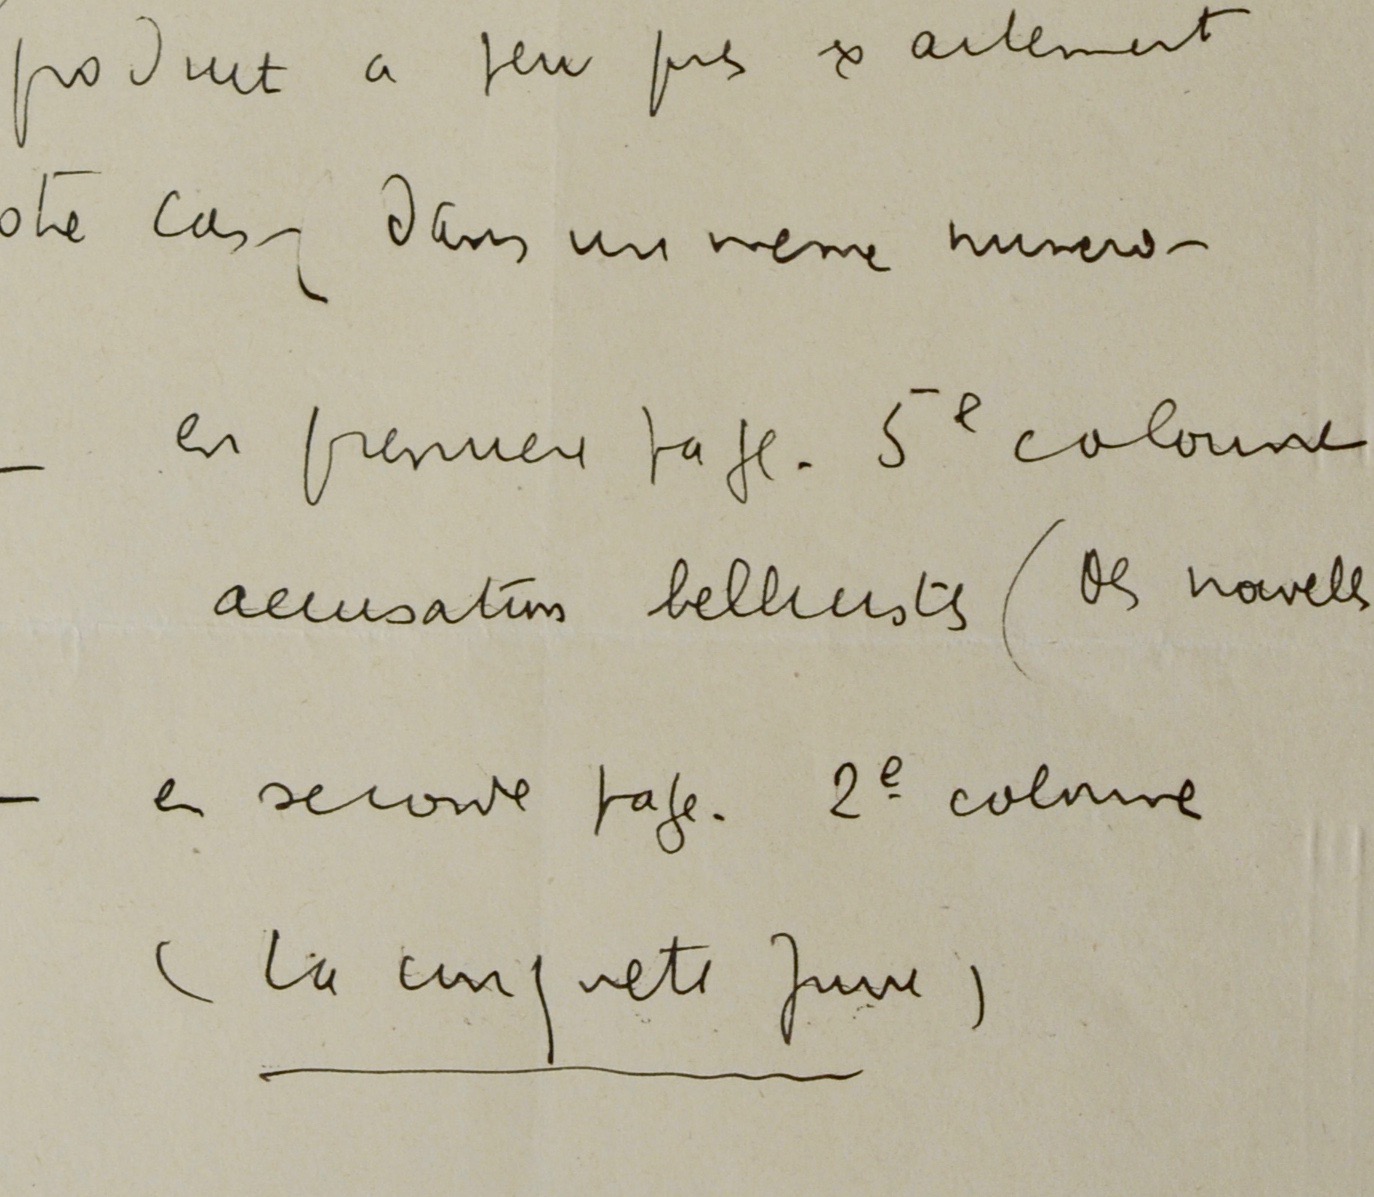 produit a peu pres exactement
cas dans un meme numero -
— en premiere page. 5e colonne
accusations bellicistes (des nouvelles
— en seconde page. 2e colonne
(La conquete